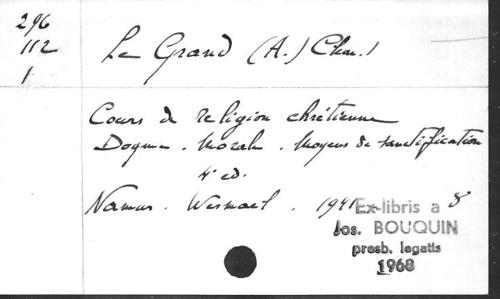 296
112
1
Le Grand (A.) Chan.
Cours de religion chrétienne
Dogme. Morale. Moyens de sanctification
4e ed.
Namur. Wesmael. 1941 8
Ex-libris a
Jos. BOUQUIN
presb. legatis
1968